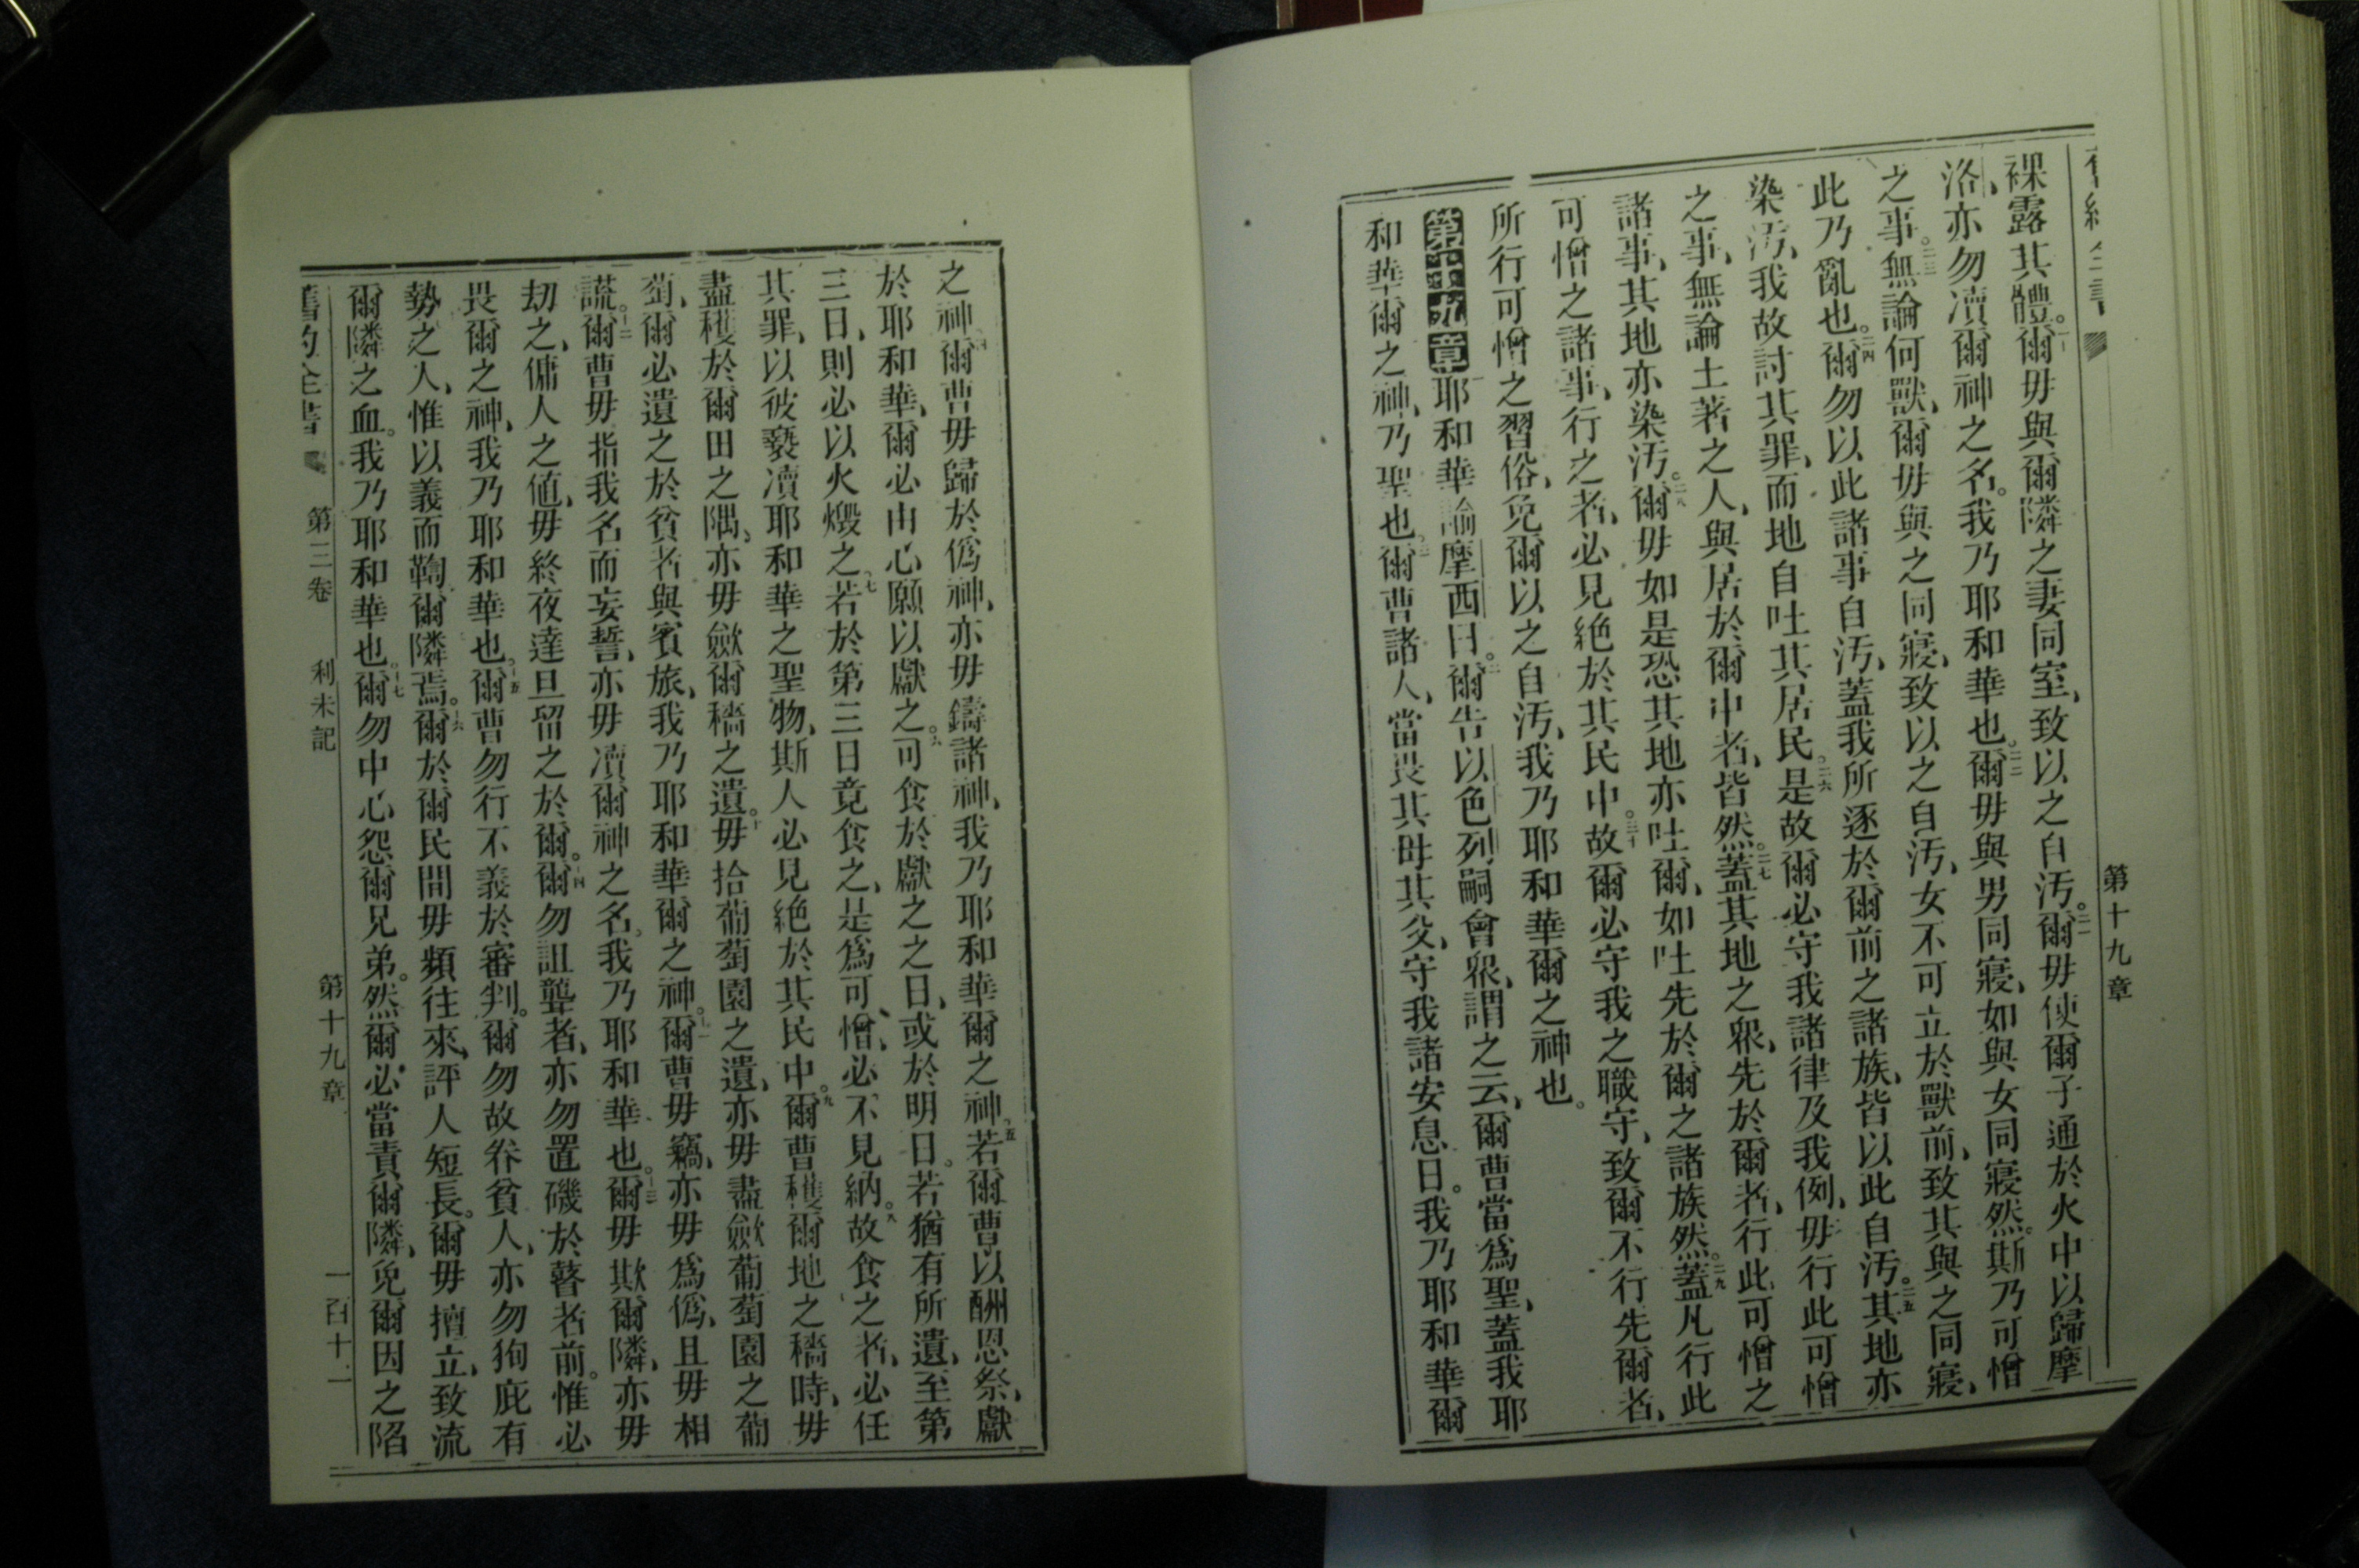 第十九章
裸露其體。二十爾毋與爾隣之妻同室、致以之自汚。二一爾毋使爾子通於火中以歸摩
洛、亦勿凟爾神之名。我乃耶和華也。二二爾毋與男同寢、如與女同寢然。斯乃可憎
之事。二三無論何獸、爾毋與之同寢、致以之自汚、女不可立於獸前、致其與之同寢、
此乃亂也。二四爾勿以此諸事自汚、蓋我所逐於爾前之諸族、皆以此自汚。二五其地亦
染汚、我故討其罪、而地自吐其居民。二六是故爾必守我諸律及我例、毋行此可憎
之事、無論土著之人、與居於爾中者、皆然。二七蓋其地之衆、先於爾者、行此可憎之
諸事、其地亦染汚。二八爾毋如是恐其地亦吐爾、如吐先於爾之諸族然。二九蓋凡行此
可憎之諸事、行之者、必見絶於其民中。三十故爾必守我之職守、致爾不行先爾者、
所行可憎之習俗、免爾以之自汚、我乃耶和華爾之神也。
第十九章耶和華諭摩西曰。二爾告以色列嗣會衆、謂之云、爾曹當爲聖、蓋我耶
和華爾之神、乃聖也。三爾曹諸人、當畏其母其父、守我諸安息日。我乃耶和華爾
之神。四爾曹毋歸於僞神、亦毋鑄諸神、我乃耶和華爾之神。五若爾曹以酬恩祭、獻
於耶和華、爾必由心願以獻之。六可食於獻之之日、或於明日。若猶有所遺、至第
三日、則必以火燬之。七若於第三日竟食之、是爲可憎、必不見納。八故食之者、必任
其罪、以彼褻凟耶和華之聖物、斯人必見絶於其民中。九爾曹穫爾地之穡時、毋
盡穫於爾田之隅、亦毋歛爾穡之遺。十毋拾葡萄園之遺、亦毋盡歛葡萄園之葡
萄、爾必遺之於貧者與賓旅、我乃耶和華爾之神。十一爾曹毋竊、亦毋爲僞、且毋相
謊。十二爾曹毋指我名而妄誓、亦毋凟爾神之名。我乃耶和華也。十三爾毋欺爾隣、亦毋
刧之、傭人之値、毋終夜達旦留之於爾。十四爾勿詛聾者、亦勿置磯於瞽者前。惟必
畏爾之神、我乃耶和華也。十五爾曹勿行不義於審判。爾勿故眷貧人、亦勿狥庇有
勢之人、惟以義而鞫爾隣焉。十六爾於爾民間毋頻往來、評人短長。爾毋擅立、致流
爾隣之血。我乃耶和華也。十七爾勿中心怨爾兄弟。然爾必當責爾隣、免爾因之陷
舊約全書 第三卷 利未記 第十九章 一百十一